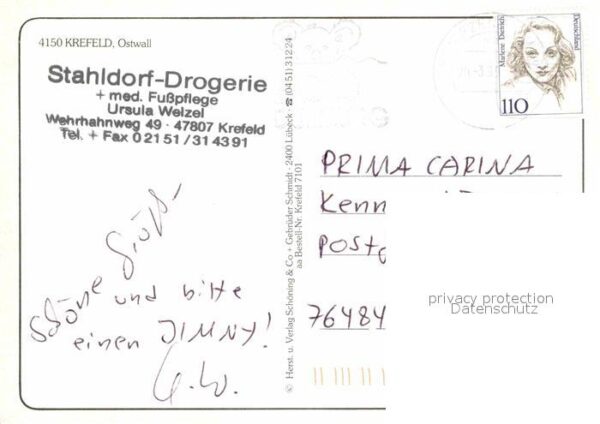 4150 KREFELD, Ostwall
Stahldorf-Drogerie
+ med. Fußpflege
Ursula Welzel
Wehrhahnweg 49 · 47807 Krefeld
Tel. + Fax 0 21 51 / 31 43 91
Schöne Grüße
und bitte
einen JIMNY!
U.W.
© Herst. u. Verlag Schöning & Co + Gebrüder Schmidt · 2400 Lübeck · ☎ (04 51) 3 12 24
aa Bestell-Nr. Krefeld 7101
Marlene Dietrich
Deutschland
110
PRIMA CARINA
Kenn
POSTG
76484
privacy protection
Datenschutz